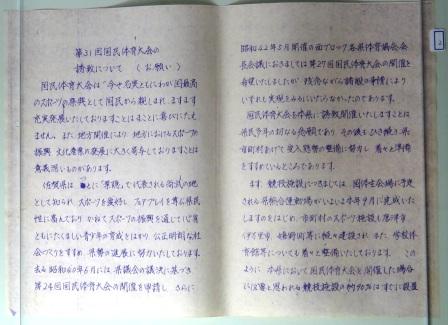 第31回国民体育大会の
誘致について （お願い）
国民体育大会は 今や名実ともにわが国最高
のスポーツの祭典として国民から親しまれ ますます
充実発展いたしておりますことはまことに喜びにたえ
ません。また 地方開催により 地方におけるスポーツの
振興 文化産業の発展に大きく寄与しておりますことは
意義深いものがあります。
佐賀県は もともと「葉隠」で代表される尚武の地
として知られ スポーツを愛好し フェアプレイを尊ぶ県民
性に富んでおり かねてスポーツの振興を通じて心身
ともにたくましい青少年の育成をはかり 公正明朗な社
会づくりをすすめ 県勢の進展に努力いたしております。
去る 昭和40年6月には 県議会の議決に基づき
第24回国民体育大会の開催を申請し さらに
昭和42年5月開催の西ブロック各県体育協会会
長会議におきましては 第27回国民体育大会の開催を
希望いたしましたが 残念ながら諸般の事情により
いずれも実現をみるにいたらなかったのであります。
国民体育大会を本県に誘致開催いたしますことは
県民多年の切なる念願であり その後もひき続き 県
市町村あげて 受入態勢の整備に努力し 着々と準備
をすすめているところであります。
まず 競技施設につきましては 国体主会場に予定
される県総合運動場がいよいよ本年9月に完成いた
しますのをはじめ 市町村のスポーツ施設も唐津市
伊万里市 嬉野町等に続々建設され また 学校体
育館等についても着々と整備いたしております。この
ように 本県において国民体育大会を開催した場合
に必要と思われる競技施設の約70%はすでに設置